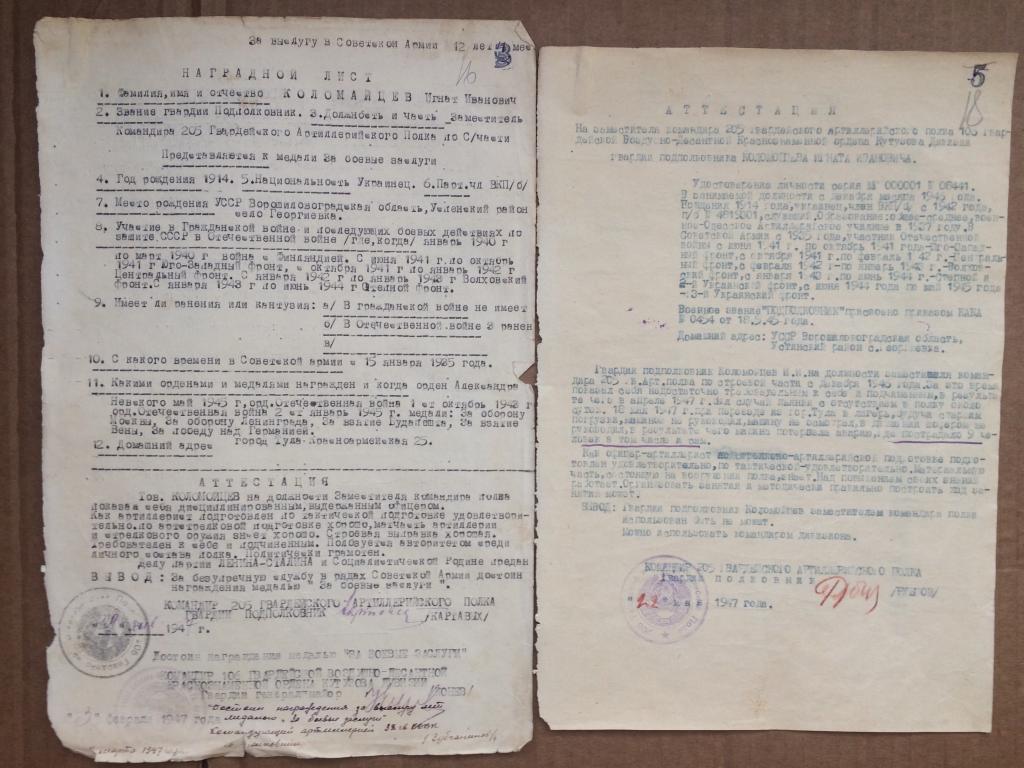 За выслугу в Советской Армии 12 лет
3
НАГРАДНОЙ ЛИСТ
1. Фамилия,имя и отчество КОЛОМАЙЦЕВ Игнат Иванович
2. Звание гвардии Подполковник. 3.Должность и часть Заместитель
Командира 205 Гвардейского Артиллерийского Полка по С/части
Представляется к медали За боевые заслуги
4. Год рождения 1914. 5.Национальность Украинец. 6.Парт.чл ВКП/б/
7. Место рождения УССР Ворошиловоградская область,Успенский район
село Георгиевка.
8. Участие в Гражданской войне и последующих боевых действиях по
защите СССР в Отечественной войне /где,когда/ январь 1940 г
по март 1940 г война с Финляндией. С июня 1941 г.по октябрь
1941 г Юго-Западный фронт, с октября 1941 г по январь 1942 г
Центральный фронт. С января 1942 г по январь 1943 г Волховский
фронт.С января 1943 г по июнь 1944 г Степной фронт.
9. Имеет ли ранения или кантузия: а/ В гражданской войне не имеет
б/ В Отечественной войне 3 ранен
в/
10. С какого времени в Советской армии с 15 января 1935 года.
11. Какими орденами и медалями награжден и когда орден Александра
Невского май 1945 г,орд.Отечественная война 1 ст октябрь 1943 г
орд.Отечественная война 2 ст январь 1945 г. медали: За оборону
Москвы, За оборону Ленинграда, За взятие Будапешта, За взятие
Вены, За победу над Германией.
12. Домашний адрес город Тула-Красноармейская 25.
АТТЕСТАЦИЯ
Тов. КОЛОМОЙЦЕВ на должности Заместителя командира полка
показал себя дисциплинированным,выдержанным офицером.
Как артиллерист подготовлен по тактической подготовке удовлетвори-
тельно.по артстрелковой подготовке хорошо,матчасть артиллерии
и стрелкового оружия знает хорошо. Строевая выправка хорошая.
Требователен к себе и подчиненным. Пользуется авторитетом среди
личного состава полка. Политически грамотен.
делу партии ЛЕНИНА-СТАЛИНА и Социалистической Родине предан
ВЫВОД: За безупречную службу в рядах Советской Армии достоин
награждения медалью " За боевые заслуги ".
КОМАНДИР 205 ГВАРДЕЙСКОГО АРТИЛЛЕРИЙСКОГО ПОЛКА
ГВАРДИИ ПОДПОЛКОВНИК /КАРТАВЫХ/
1947 г.
Достоин награждения медалью "ЗА БОЕВЫЕ ЗАСЛУГИ"
КОМАНДИР 106 ГВАРДЕЙСКОЙ ВОЗДУШНО-ДЕСАНТНОЙ
КРАСНОЗНАМЕННОЙ ОРДЕНА КУТУЗОВА ДИВИЗИИ
Гвардии генерал-майор
"3" февраля 1947 года
Достоин награждения за выслугу лет
медалью "За боевые заслуги"
Командующий артиллерией 38
марта 1947
5
18
АТТЕСТАЦИЯ
На заместителя командира 205 гвардейского артиллерийского полка 106 Гвар-
дейской Воздушно-Десантной Краснознаменной ордена Кутузова Дивизии
гвардии подполковника КОЛОМОЙЦЕВА ИГНАТА ИВАНОВИЧА.
Удостоверение личности серия № 06441.
В занимаемой должности с декабря месяца 1945 года.
рождения 1914 года,украинец,член ВКП/б/ с 1942 года,
п/б № 4815001,служащий.Образование:общее-среднее,воен-
ное-Одесское Артиллерийское училище в 1937 году.В
Советской Армии с 1935 года,участник Отечественной
войны с июня 1941 г. по октябрь 1941 года-Юго-Запад-
ный фронт,с октября 1941 г.по февраль 1942 г.-Централь-
ный фронт,с февраля 1942 г-по январь 1943 г.-Волхов-
ский фронт,с января 1943 г. по июнь 1944 г.-Степной и
2-й Украинский фронт,с июня 1944 года по май 1945 года
-3-й Украинский фронт.
Военное звание"ПОДПОЛКОВНИК"присвоено приказом
№ 0454 от 18.9.45 года.
Домашний адрес: УССР Ворошиловоградская область,
район с.Георгиевка.
Гвардии подполковник Коломойцев И.И.на должности заместителя коман-
дира 205 Гв.Арт.полка по строевой части с декабря 1945 года.За это время
показал себя недостаточно требовательным к себе и подчиненным,в результа-
те чего в апреле 1947 г. был случай пьянки с отсутствием в полку около
суток. 18 мая 1947 г.при переезде из гор.Тула в лагерь,будучи старшим
погрузкой машиной не руководил,машину не осмотрел,в движении шофером не
руководил,в результате чего машина потерпела аварию,где пострадало 9 че-
ловек в том числе и сам.
Как офицер-артиллерист по артиллерийской подготовке подго-
товлен удовлетворительно,по тактической-удовлетворительно.Материальную
часть,состоящую на вооружении полка,знает.Над повышением своих знаний
работает.Организовать занятия и методически правильно построить ход за-
нятия может.
ВЫВОД: Гвардии подполковник Коломойцев заместителем командира полка
использован быть не может.
Можно использовать командиром дивизиона.
КОМАНДИР 205 ГВАРДЕЙСКОГО АРТИЛЛЕРИЙСКОГО ПОЛКА
Гвардии полковник
"22" мая 1947 года.